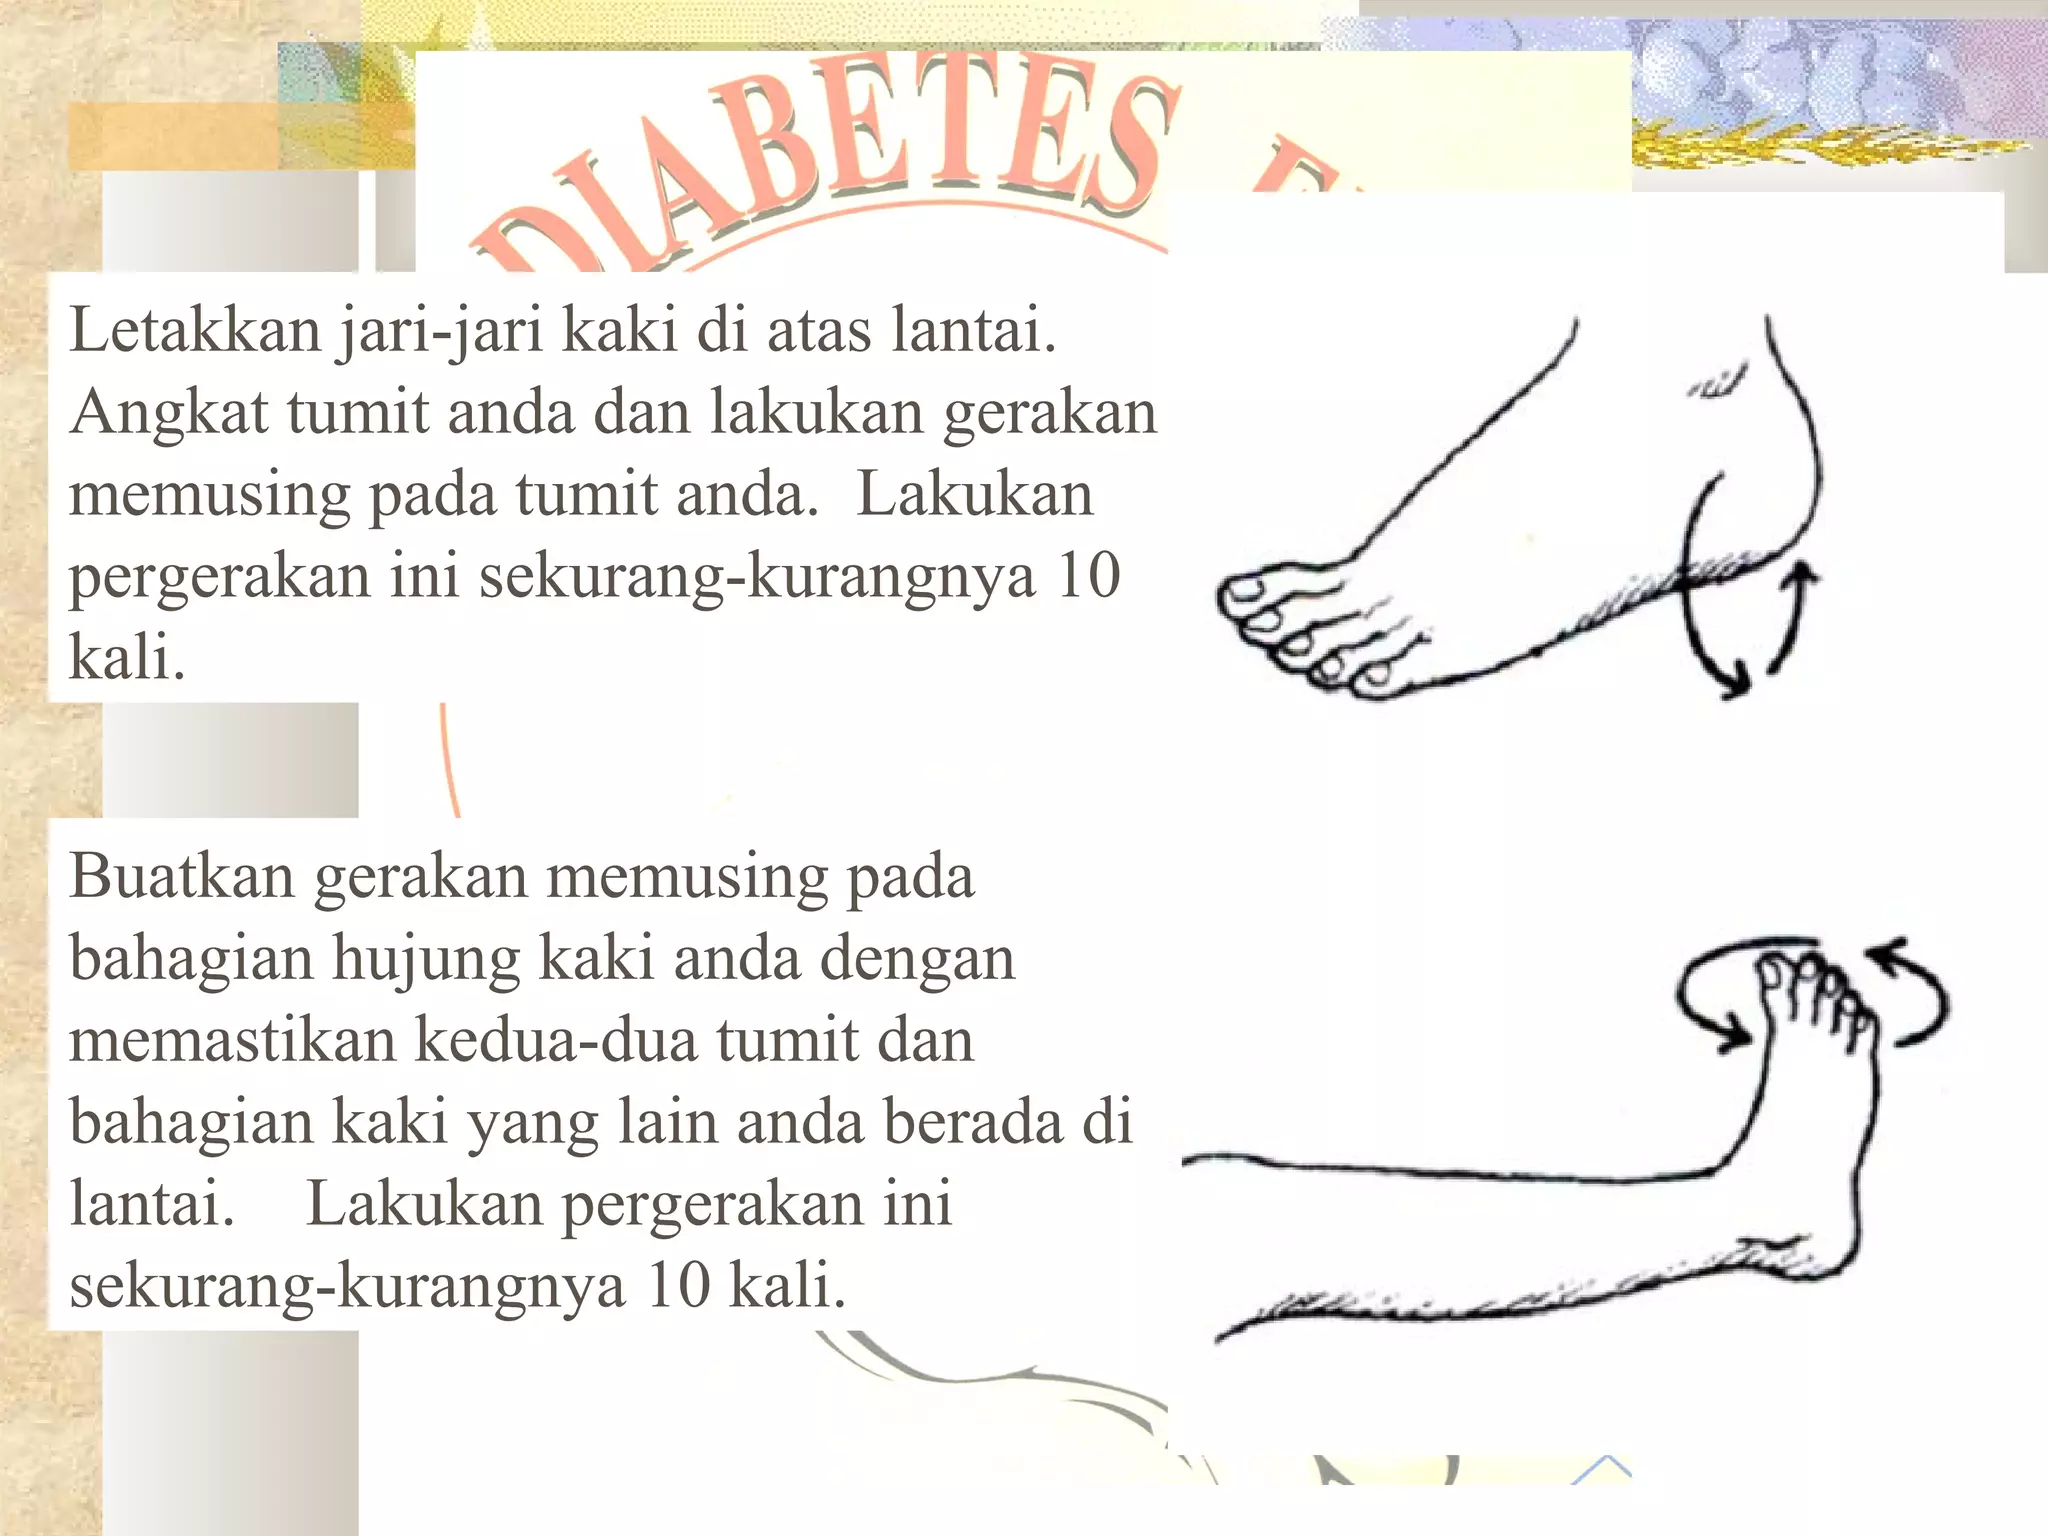 DIABETES
Letakkan jari-jari kaki di atas lantai.
Angkat tumit anda dan lakukan gerakan
memusing pada tumit anda.  Lakukan
pergerakan ini sekurang-kurangnya 10
kali.
Buatkan gerakan memusing pada
bahagian hujung kaki anda dengan
memastikan kedua-dua tumit dan
bahagian kaki yang lain anda berada di
lantai.    Lakukan pergerakan ini
sekurang-kurangnya 10 kali.